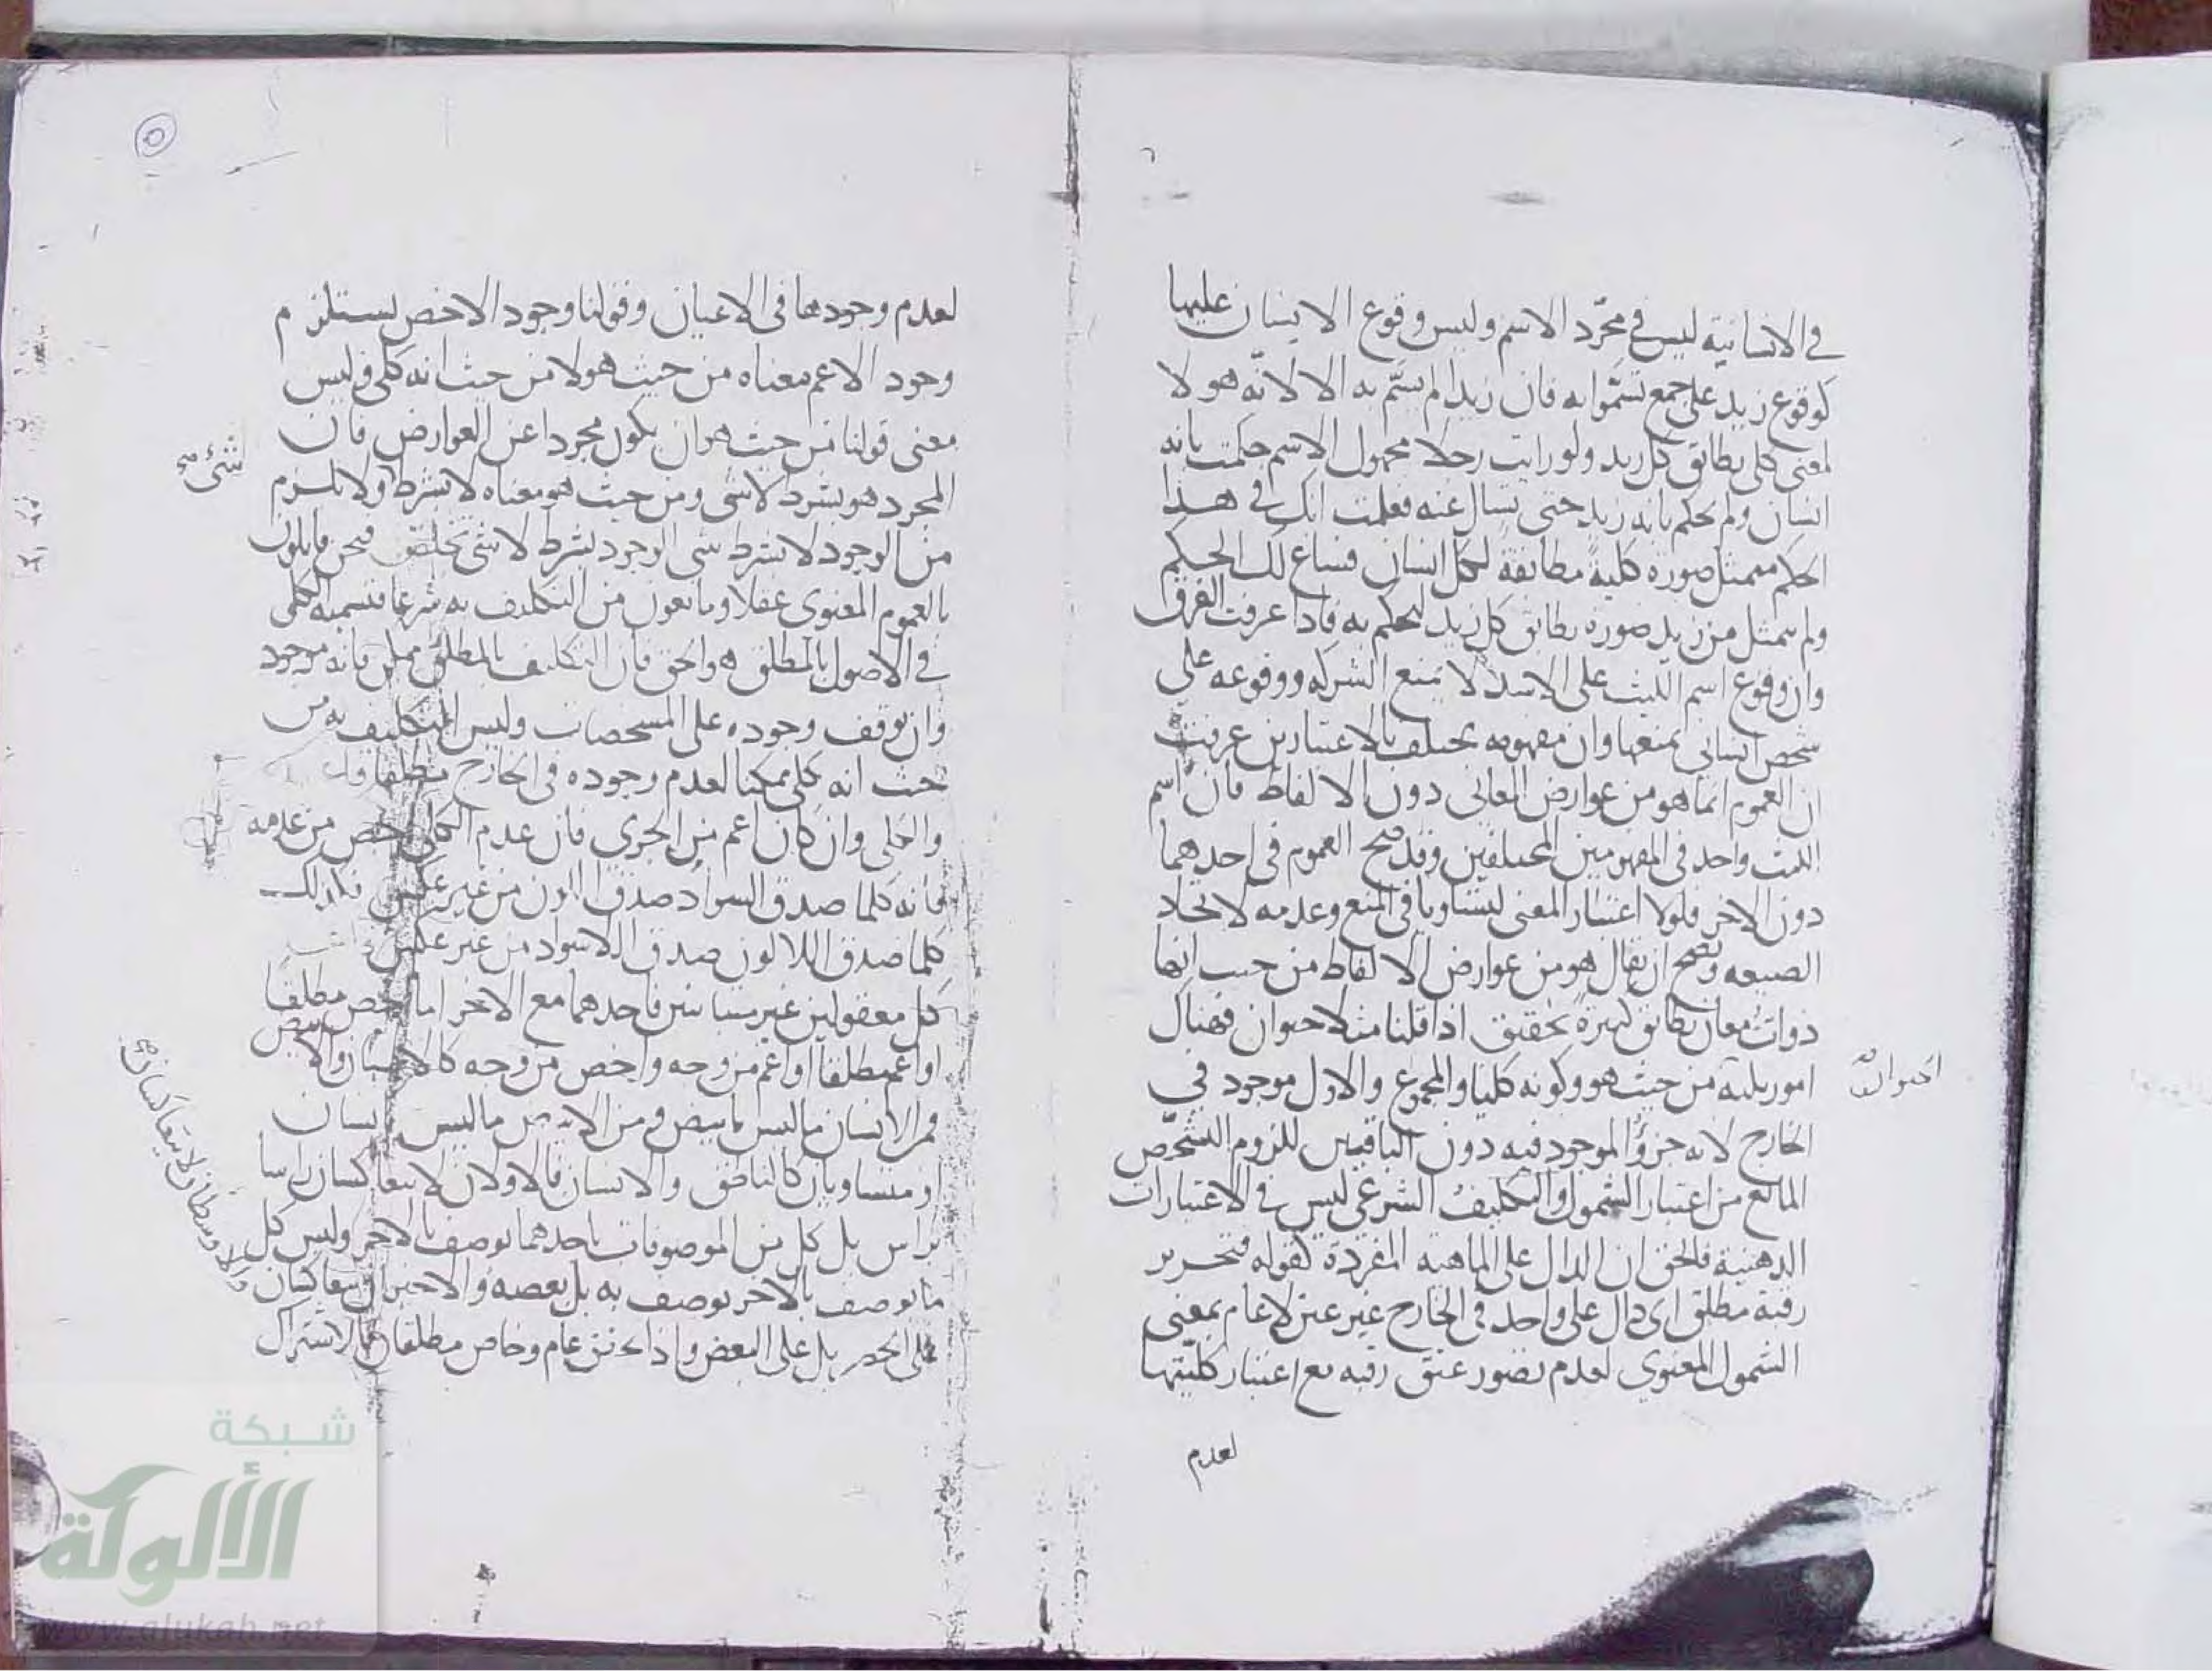 في الانسانية ليس في مجرّد الاسم وليس وقوع الانسان عليها
كوقوع زيد على جمع تسمّوا به فان زيدا لم يسمّ به الا لانّه هو لا
لمعنى كلى يطابق كل زيد ولو رايت رجلا مجهول الاسم حكمت بانه
انسان ولم تحكم بانه زيد حتى تسال عنه فعلمت انك في هذا
الحكم متمثل صورة كلية مطابقة لكل انسان فساغ لك الحكم
ولم يتمثل من زيد صورة يطابق كل زيد لتحكم به فاذا عرفت الفرق
وان وقوع اسم الليث على الاسد لا يمنع الشركة ووقوعه على
شخص انساني يمنعها وان مفهومه يختلف بالاعتبارين عرفت
ان العموم انما هو من عوارض المعانى دون الالفاظ فان اسم
الليث واحد في المفهومين المختلفين وقد صح العموم في احدهما
دون الاخر فلولا اعتبار المعنى ليتساويا في المنع وعدمه لاتحاد
الصيغه ويصح ان يقال هو من عوارض الالفاظ من حيث انها
ذوات معان يطابق كثيرة تحقيق اذا قلنا مثلا حيوان فهناك
امور ثلثة من حيث هو وكونه كليا والمجموع والاول موجود في
الحيوان
الخارج لانه جزؤ الموجود فيه دون الباقيين للزوم التشخّص
المانع من اعتبار الشمول والتكليف الشرعى ليس في الاعتبارات
الذهنية فالحق ان الدال على الماهية المفردة كقوله فتحرير
رقبة مطلق اى دال على واحد في الخارج غير عين لا عام بمعنى
الشمول المعنوي لعدم تصور عتق رقبة مع اعتبار كليّتها
لعدم
٥
لعدم وجودها في الاعيان وقولنا وجود الاخص يستلزم
وجود الاعم معناه من حيث هو لا من حيث انه كلى وليس
معنى قولنا من حيث هو ان يكون مجردا عن العوارض فان
شئ صح
المجرد هو بشرط لاشى ومن حيث هو معناه لا بشرط ولا يلزم
من الوجود لا بشرط شى الوجود بشرط لاشى فنحن قايلون
بالعموم المعنوى عقلا ومانعون من التكليف به شرعا فتسمية الكلى
في الاصول بالمطلق هو الحق فان التكليف بالمطلق ممكن فانه موجود
وان توقف وجوده على المشخصات وليس التكليف به من
حيث انه كلى ممكنا لعدم وجوده في الخارج مطلقا
والكلى وان كان اعم من الجزى فان عدم الكلى اخص من عدمه
فانه كلما صدق السواد صدق اللون من غير عكس فكذلك
كلما صدق اللالون صدق اللاسواد من غير عكس
كل معقولين غير متباينين فاحدهما مع الاخر اما اخص مطلقا
او اعم مطلقا او اعم من وجه واخص من وجه كالانسان والابيض
فمن الانسان ما ليس بابيض ومن الابيض ما ليس بانسان
او متساويان كالناطق والانسان فالاولان لا يتعاكسان راسا
براس بل كل من الموصوفات باحدهما يوصف بالاخر وليس كل
ما يوصف بالاخر يوصف به بل بعضه والاخيران يتعاكسان
والاوسطان لا يتعاكسان صح
على الحصر بل على البعض واذا عام وخاص مطلقا فالاشتراك
شبكة
الألوكة
www.alukah.net